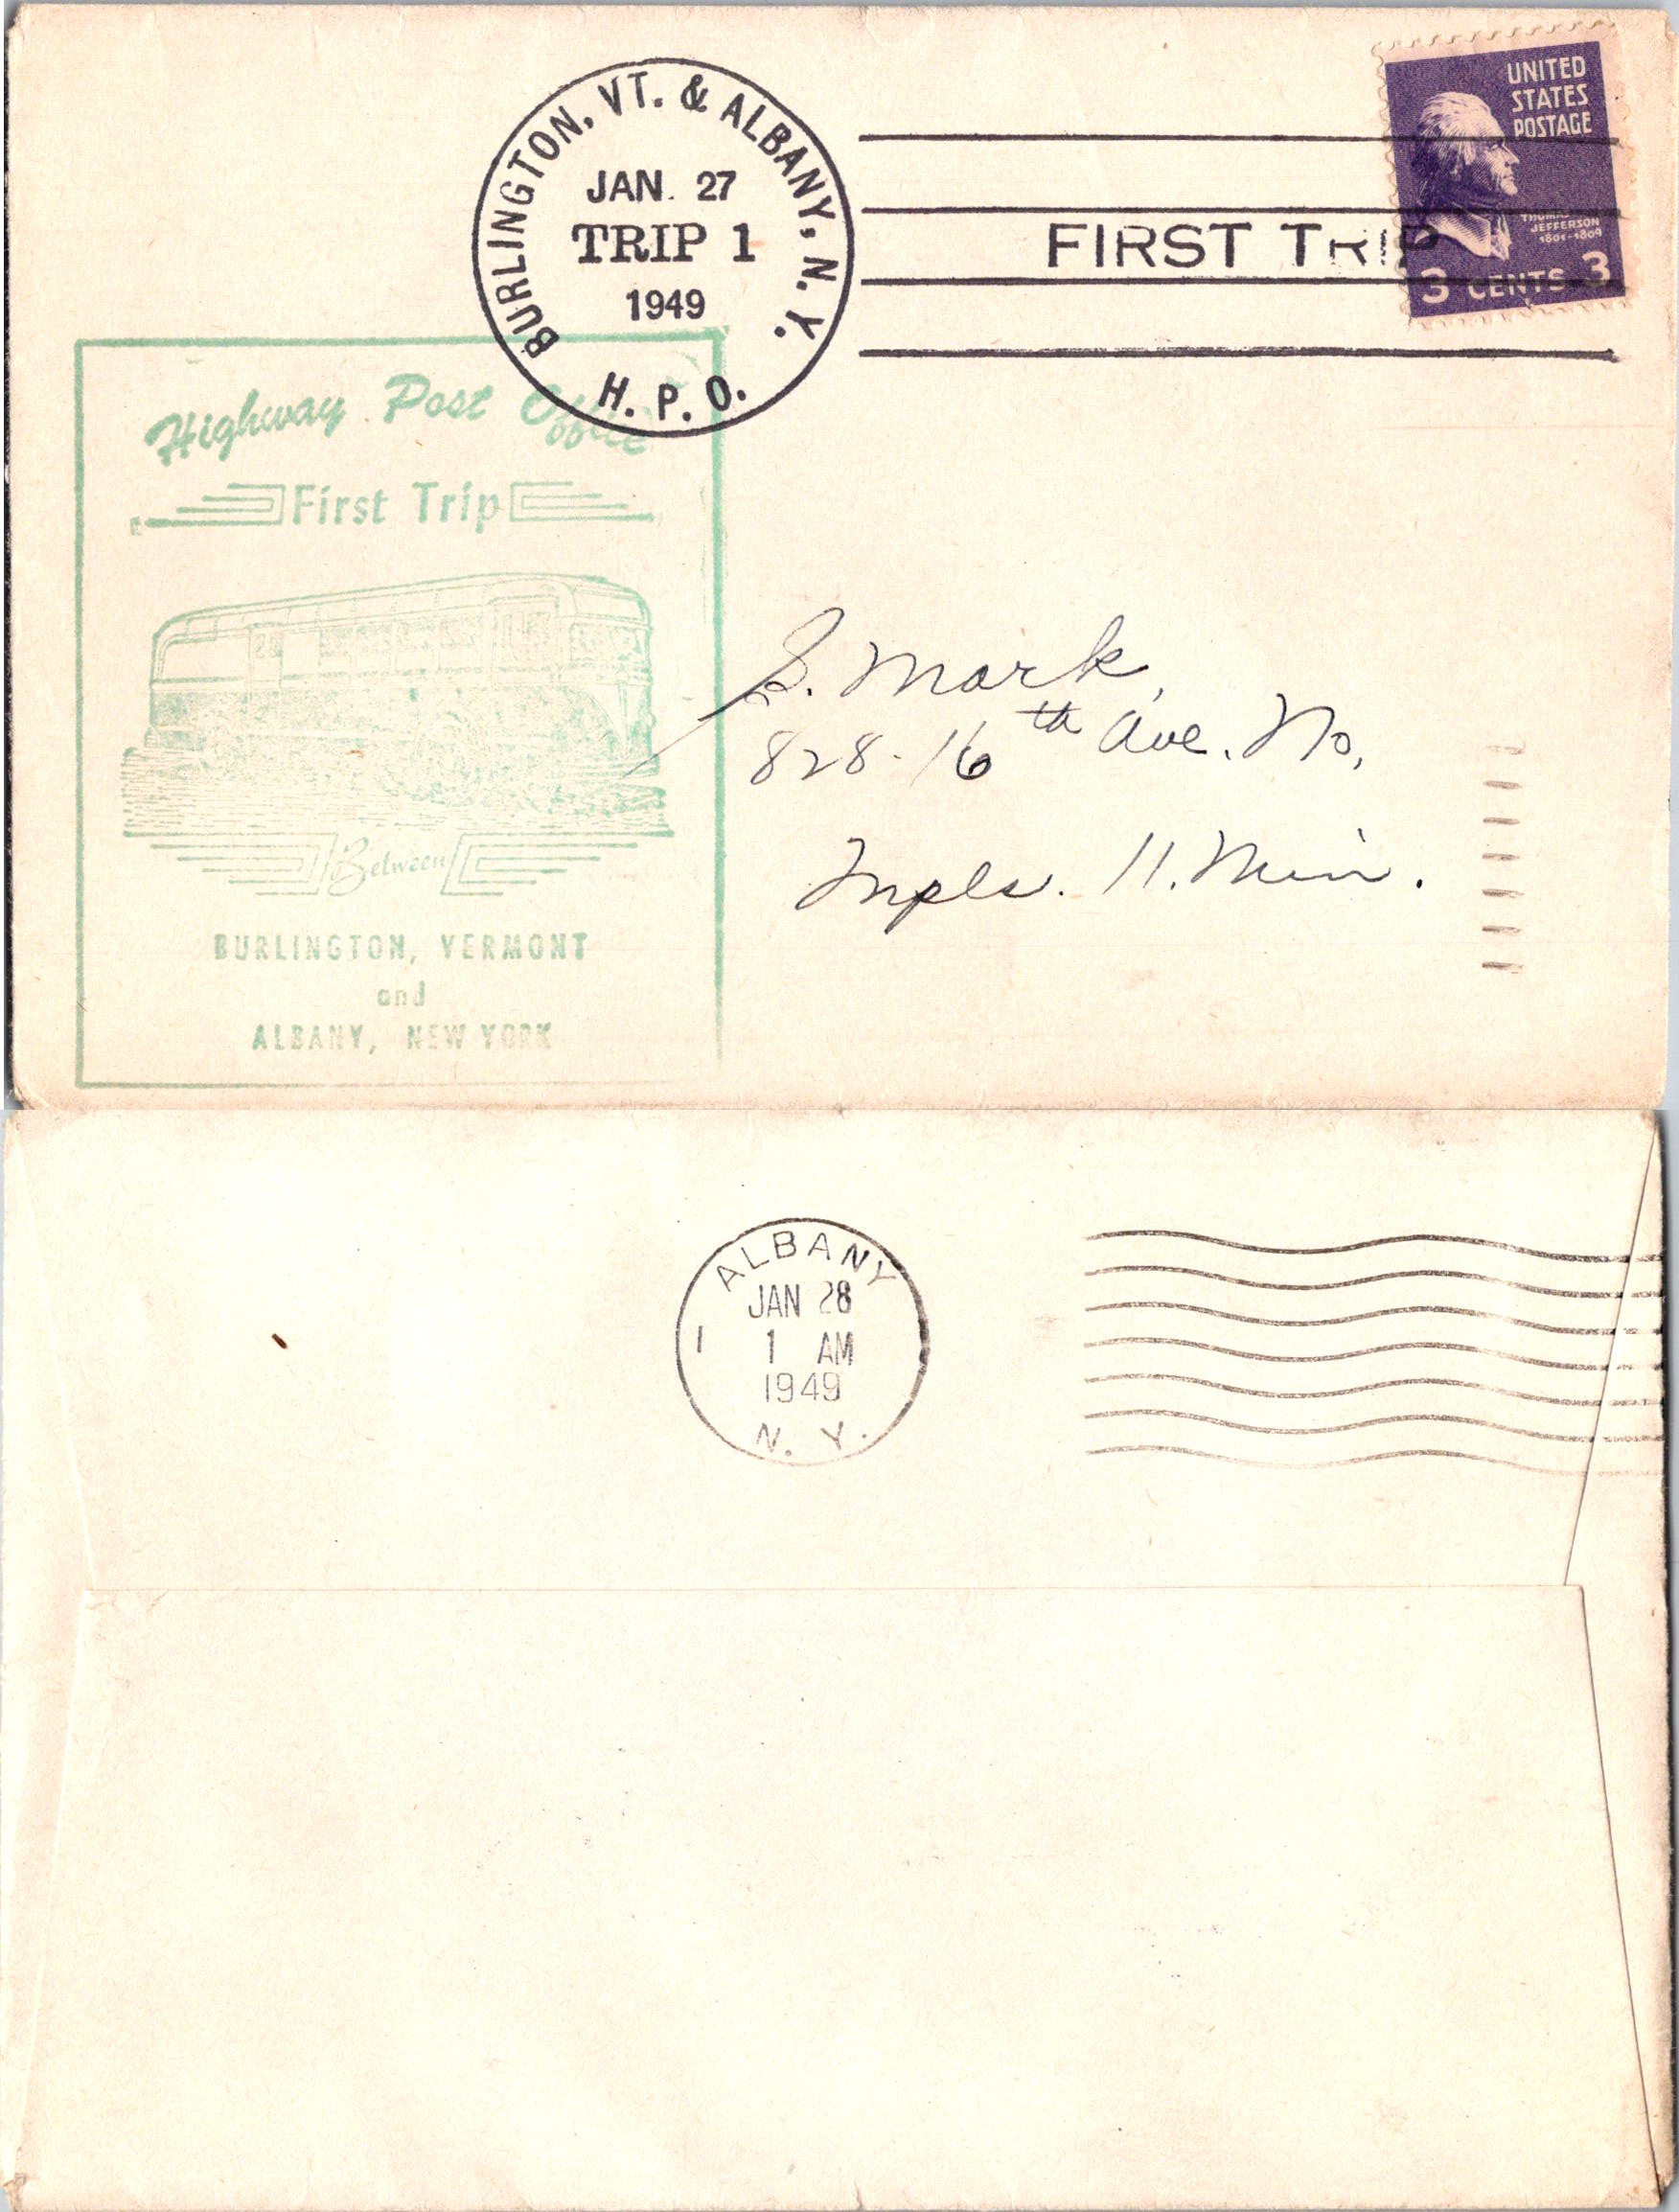 BURLINGTON, VT. & ALBANY, N. Y.
JAN. 27
TRIP 1
1949
H. P. O.
FIRST TRIP
UNITED
STATES
POSTAGE
THOMAS
JEFFERSON
1801-1809
3 CENTS 3
Highway Post Office
First Trip
Between
BURLINGTON, VERMONT
and
ALBANY, NEW YORK
S. Mark,
828-16th Ave. No,
Mpls. 11. Min.
ALBANY
JAN 28
1 1 AM
1949
N. Y.